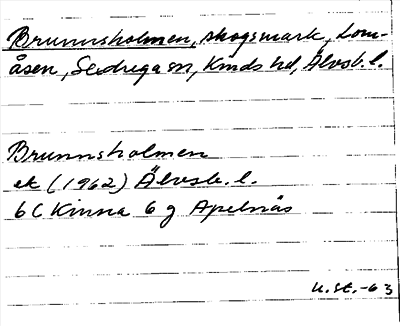 Brunnsholmen, skogsmark, Lom-
åsen, Sedruga sn, Kinds hd, Älvsb. l.
Brunnsholmen
ek (1962) Älvsb. l.
6C Kinna 6 g Apelnäs
u.st.-63